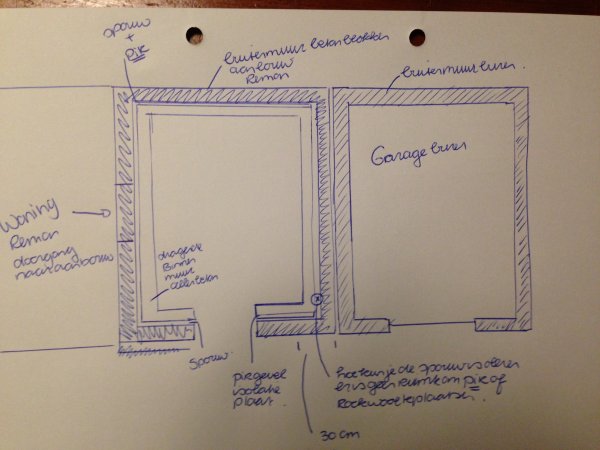 spouw
+
PIR
buitenmuur betonblokken
aanbouw
Reman
buitenmuur buren.
Garage buren
Woning
Reman
doorgang
naar aanbouw
dragende
Binnen
muur
cellenbeton
Spouw.
pirgevel
isolatie
plaat.
hoe kun je de spouw isoleren
er is geen ruimte om PIR of
Rockwool te plaatsen.
30 cm